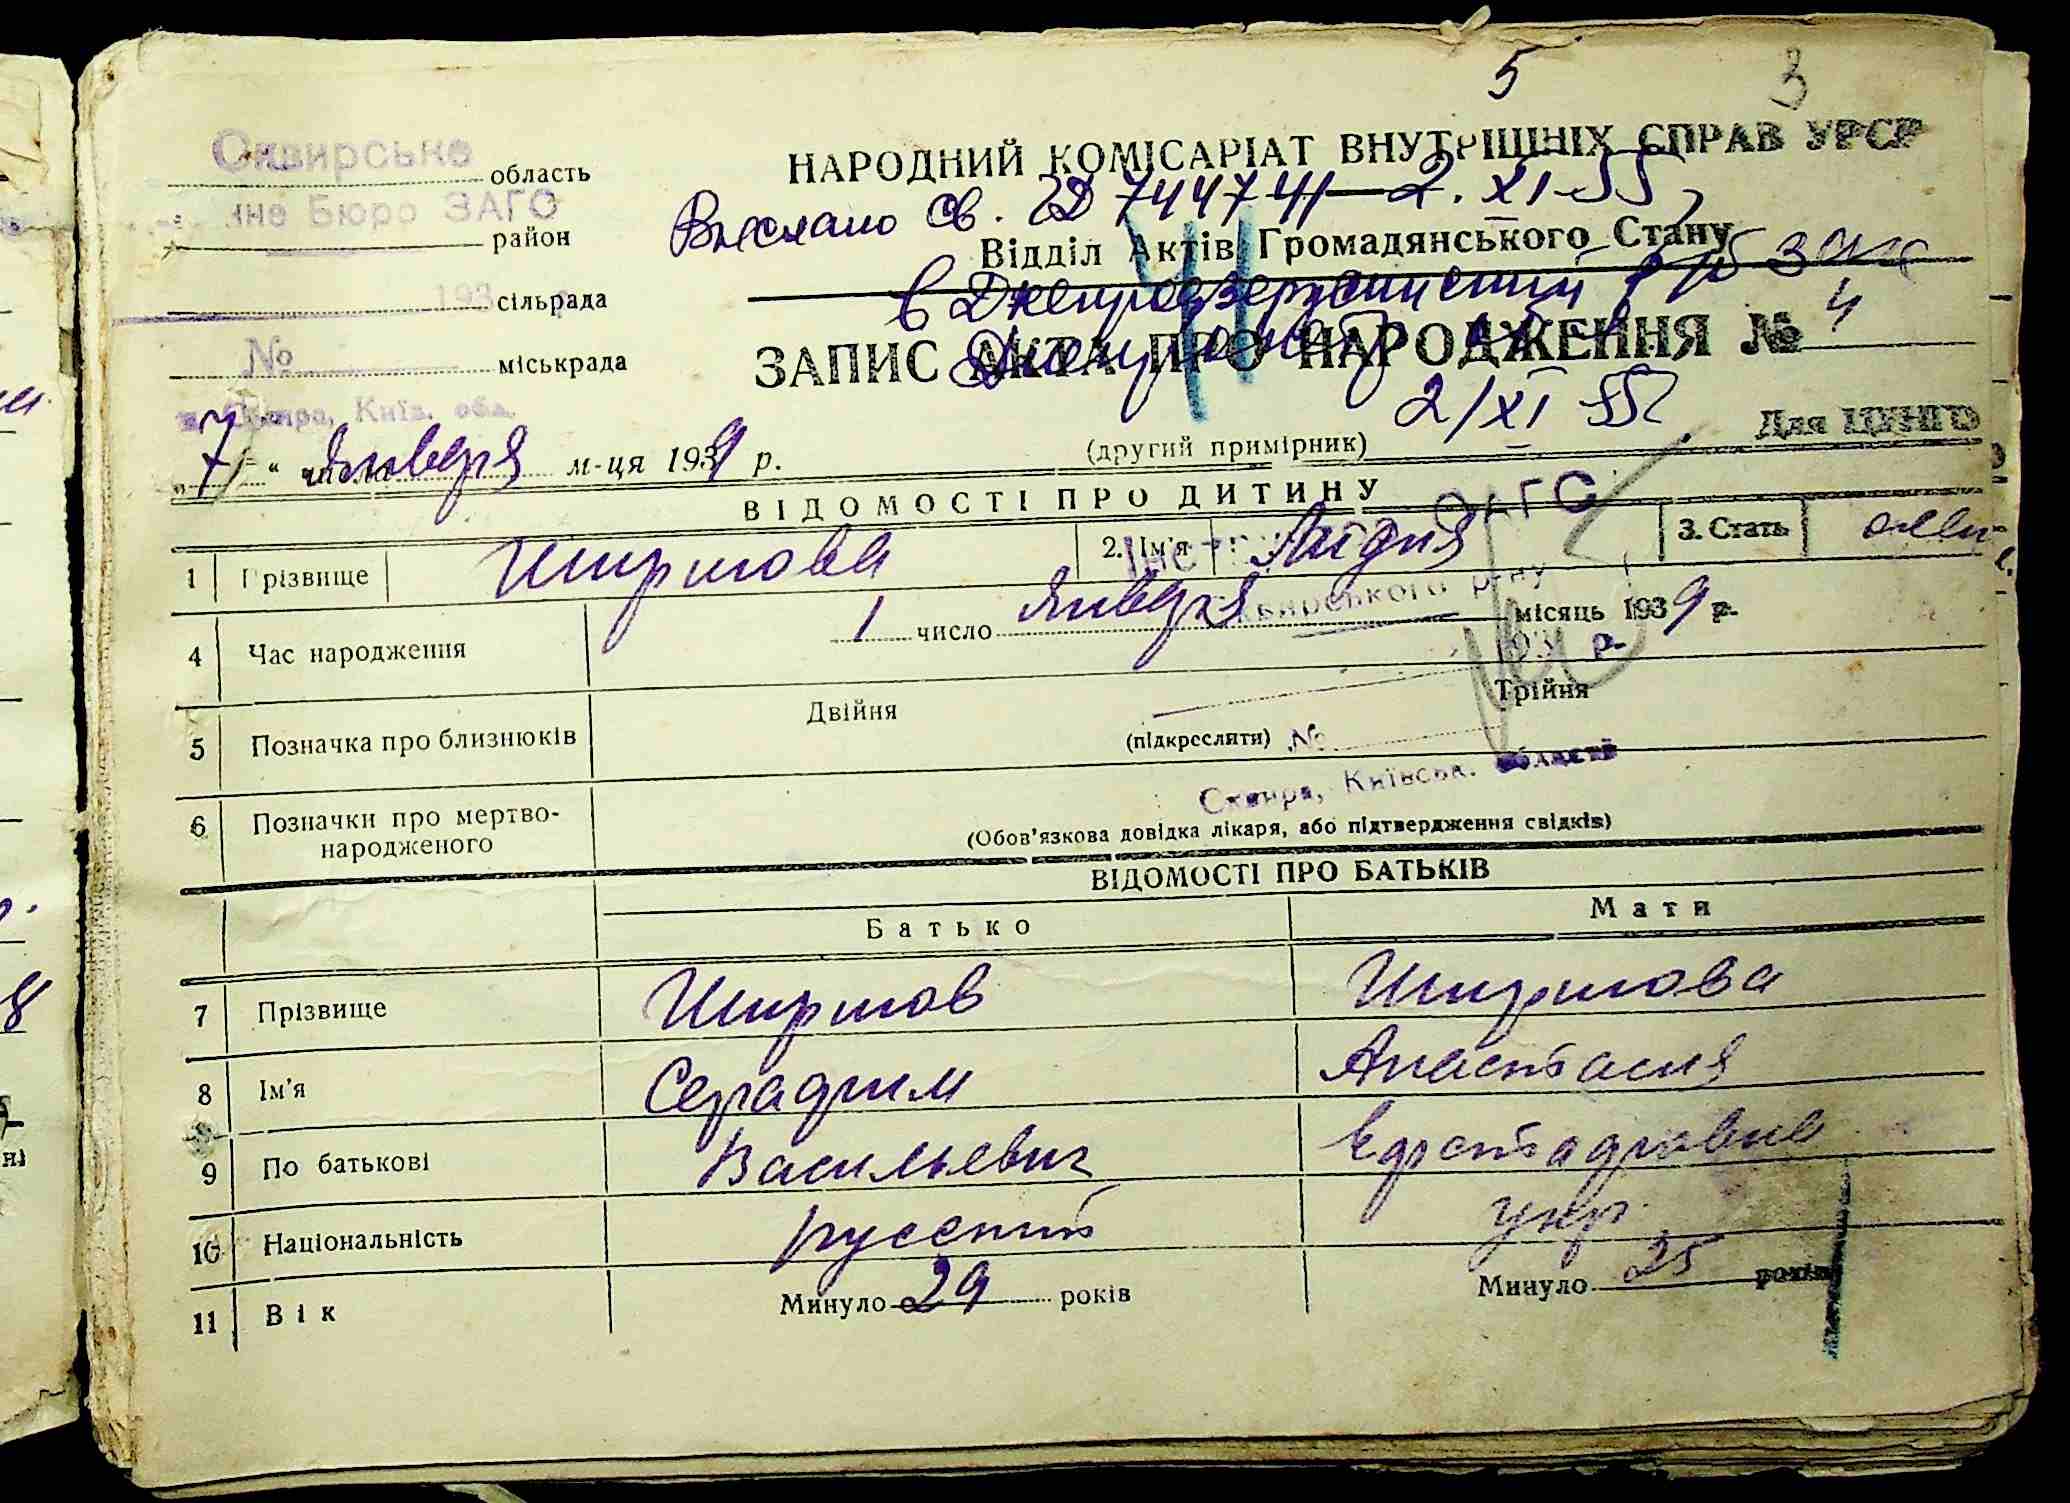 5 3
Сквирське
область
НАРОДНИЙ КОМІСАРІАТ ВНУТРІШНІХ СПРАВ УРСР
Бюро ЗАГС
район
Выслано св. 2. XI-55
Відділ Актів Громадянського Стану
193 сільрада
в Днепродзержинский
№ міськрада
ЗАПИС АКТА ПРО НАРОДЖЕННЯ № 4
Сквира, Київ. обл.
2/XI 55
Для ЦУНГО
„7“ числа Января м-ця 1939 р.
(другий примірник)
ВІДОМОСТІ ПРО ДИТИНУ
ЗАГС
1 Прізвище Ширшова 2. Ім'я Лидия 3. Стать
Сквирського р-ну
4 Час народження 1 число Января місяць 1939 р.
193 р.
5 Позначка про близнюків Двійня (підкреслити) Трійня
№
Сквира, Київськ. області
6 Позначки про мертво-
народженого
(Обов'язкова довідка лікаря, або підтвердження свідків)
ВІДОМОСТІ ПРО БАТЬКІВ
Батько Мати
7 Прізвище Ширшов Ширшова
8 Ім'я Серафим Анастасия
9 По батькові Васильевич
10 Національність русский укр.
11 Вік Минуло 29 років Минуло 25 років